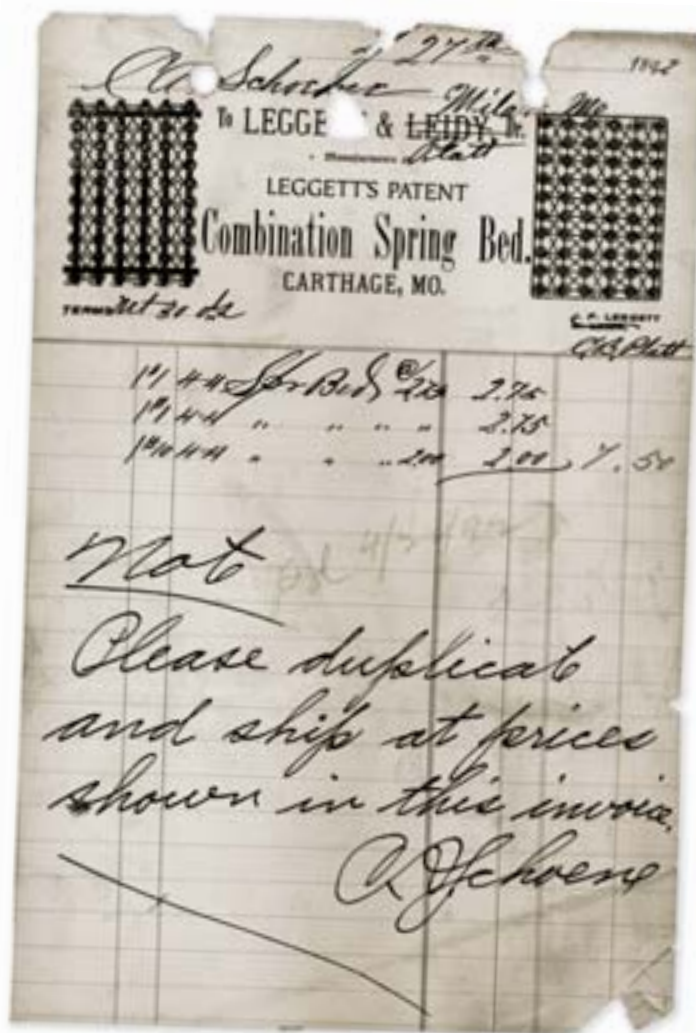 27th 1892
Schoene
Milan Mo
To LEGGETT & LEIDY, Dr.
Platt
Manufacturers of
LEGGETT'S PATENT
Combination Spring Bed.
CARTHAGE, MO.
TERMS Net 30 ds
C. B. Platt
1 #1 4-4 Spr Beds @ 2.75 2.75
1 #1 4-4 " " " " 2.75
1 #10 4-4 " " " 2.00 2.00 7.50
Not
Please duplicat
and ship at prices
shown in this invoice.
Schoene